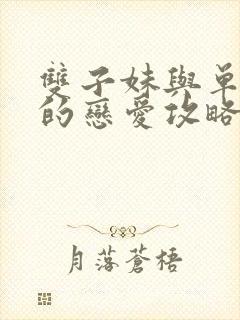 雙子妹與單
的戀愛攻略
月落蒼梧